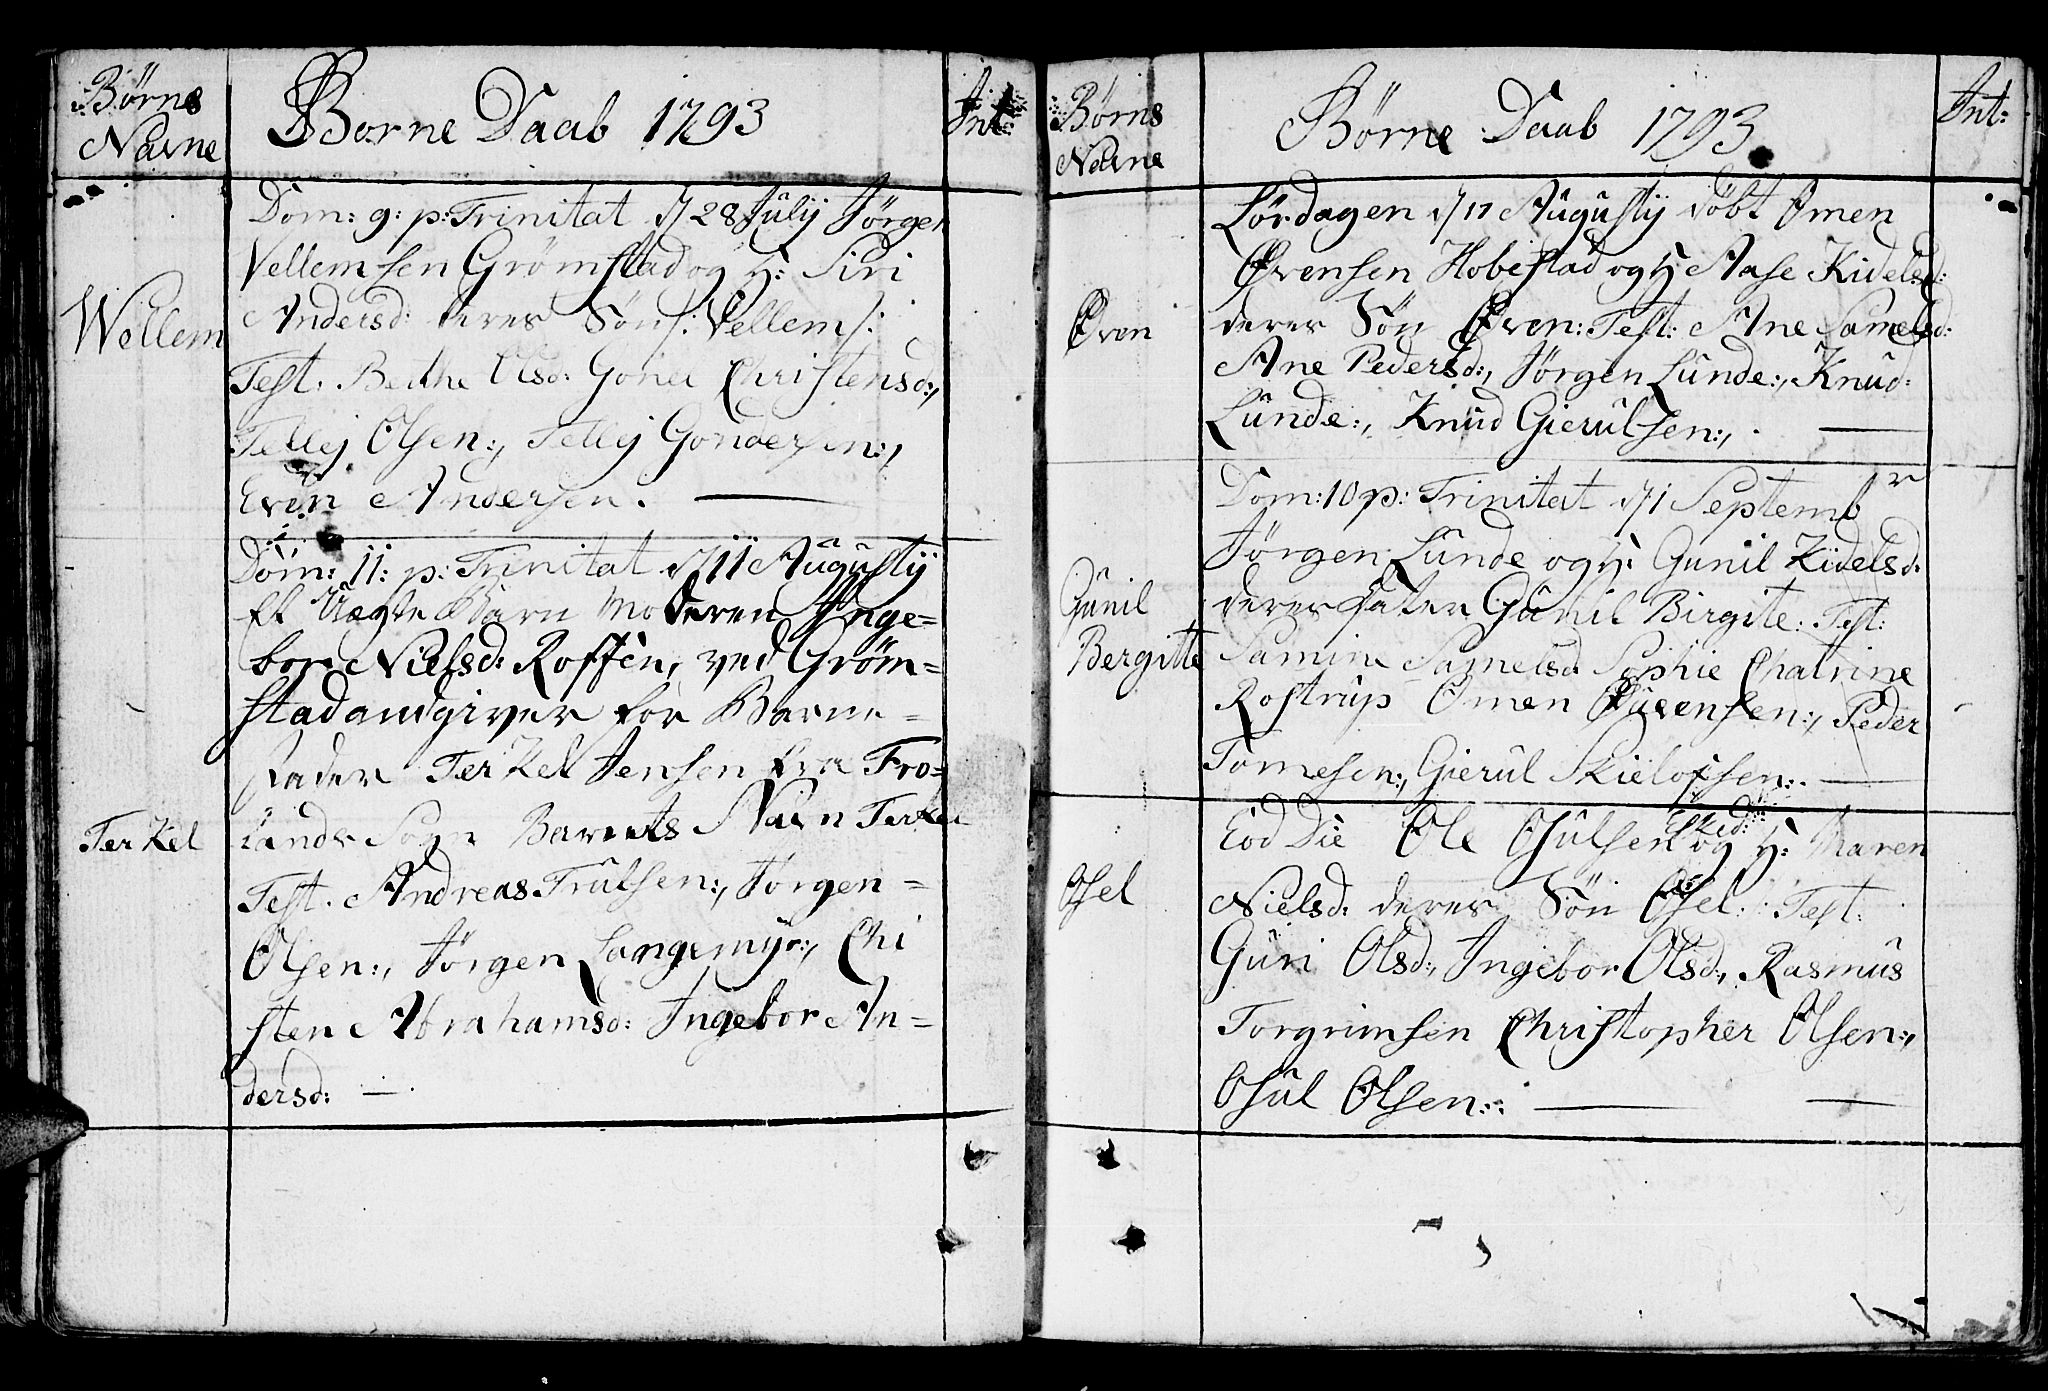 Børne
Navne
Børne Daab 1793
Int:
Dom: 9: p: Trinitat d/28 Julij Jørgen
Vellemsen Grømstad og H: Siri
Andersd: deres Søn /: Vellem /:
Wellem
Test. Berthe Olsd: Goner Christensd:,
Tellej Olsen:, Tellej Gondersen:,
Even Andersen.
Dom: 11: p: Trinitat d/11 Augustij
Et Uægte Barn Moderen Inge=
bor Nielsd: Roffen, ved Grøm=
stad angiver for Barne=
fader Terkel Jensen fra Fro=
lands Sogn Barnets Navn Terkel
Terkel
Test. Andreas Trulsen:, Jørgen=
Olsen:, Jørgen Langemyr:, Chi
sten Abrahamsd: Ingebor An=
dersd:
Børns
Navne
Børne Daab 1793
Int:
Lørdagen d/17 Augustij døbt Omen
Øvensen Hobestad og H: Aase Kidelsd:
deres Søn Øven: Test: Ane Samelsd:
Øven
Ane Pedersd:, Jørgen Lunde:, Knud:
Lunde:, Knud Gierulsen:,
Dom: 10 p: Trinitat d/1 Septembr
Jørgen Lunde og H: Gunil Kidelsd:
Gunil
Bergitte
deres Dater Gunil Birgite: Test:
Samine Samelsd: Sophie Chatrine
Rostrup Omen Øuvensen:, Peder
Tomesen:, Gierul Skielofsen:.
Eod Die Ole Osulsen Eskid: og H: Maren
Osel
Nielsd: deres Søn Osel: Test:
Guri Olsd:, Ingebor Olsd:, Rasmus
Torgrimsen Christopher Olsen:,
Osul Olsen: